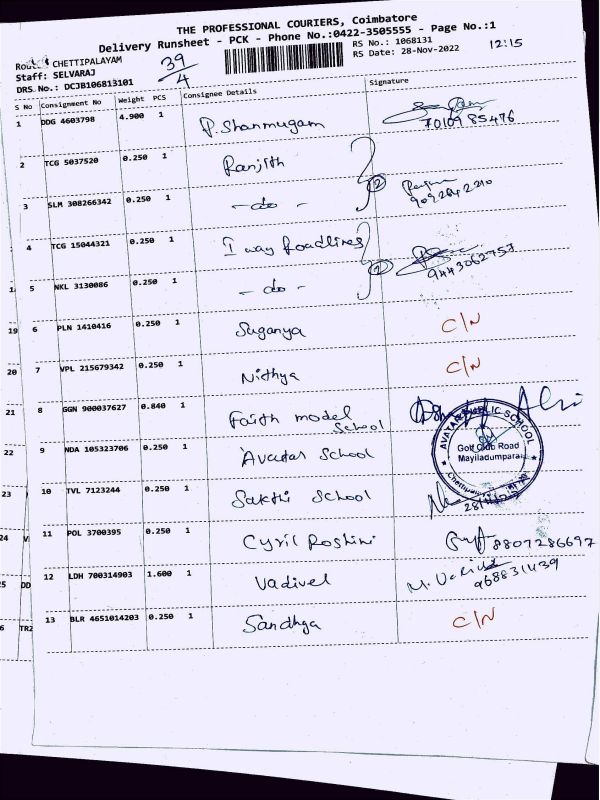 THE PROFESSIONAL COURIERS, Coimbatore
Delivery Runsheet - PCK - Phone No.:0422-3505555 - Page No.:1
Route: CHETTIPALAYAM
Staff: SELVARAJ
DRS. No.: DCJB106813101
39/4
RS No.: 1068131
RS Date: 28-Nov-2022
12:15
S No Consignment No Weight PCS Consignee Details Signature
1 DDG 4603798 4.900 1 P. Shanmugam 7010985476
2 TCG 5037520 0.250 1 Ranjith
3 SLM 308266342 0.250 1 - do - 2 9092642210
4 TCG 15044321 0.250 1 I way Roadlines
5 NKL 3130086 0.250 1 - do - 2 9443062757
19 6 PLN 1410416 0.250 1 Suganya C/N
20 7 VPL 215679342 0.250 1 Nithya C/N
21 8 GGN 900037627 0.840 1 Faith model School
22 9 NDA 105323706 0.250 1 Avatar School
AVATAR PUBLIC SCHOOL
Golf Club Road
Mayiladumparai
23 10 TVL 7123244 0.250 1 Sakthi School
24 11 POL 3700395 0.250 1 Cyril Roshini 8807286697
25 DD 12 LDH 700314903 1.600 1 Vadivel 968831439
TR2 13 BLR 4651014203 0.250 1 Sandhya C/N